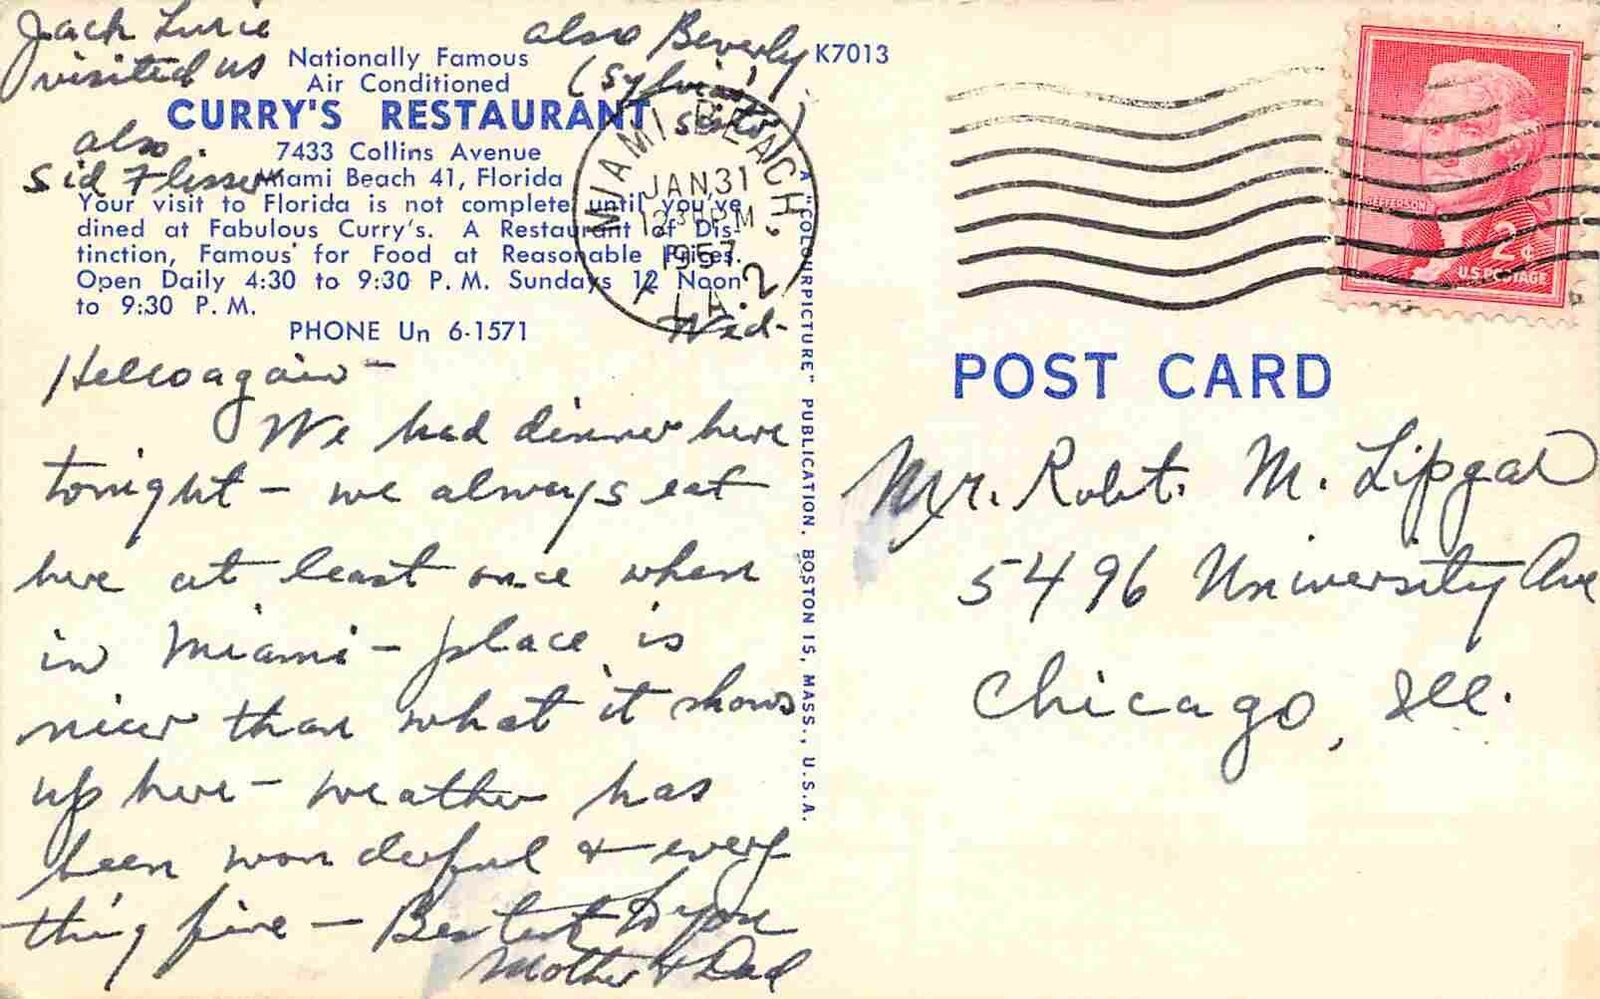 Jack Lurie
visited us
also Beverly
(Sylvia's
sister)
also
Sid Flisser
K7013
Nationally Famous
Air Conditioned
CURRY'S RESTAURANT
7433 Collins Avenue
Miami Beach 41, Florida
Your visit to Florida is not complete until you've
dined at Fabulous Curry's. A Restaurant of Dis-
tinction, Famous for Food at Reasonable Prices.
Open Daily 4:30 to 9:30 P. M. Sundays 12 Noon
to 9:30 P. M.
PHONE Un 6-1571
MIAMI BEACH, FLA. 2
JAN 31
12 30 PM
1957
Wed-
Hello again -
We had dinner here
tonight - we always eat
here at least once when
in Miami - place is
nicer than what it shows
up here - weather has
been wonderful & every
thing fine - Best to you
Mother & Dad
A "COLOURPICTURE" PUBLICATION, BOSTON 15, MASS., U.S.A.
JEFFERSON
2¢
U.S. POSTAGE
POST CARD
Mr. Robt. M. Lipgar
5496 University Ave
Chicago, Ill.